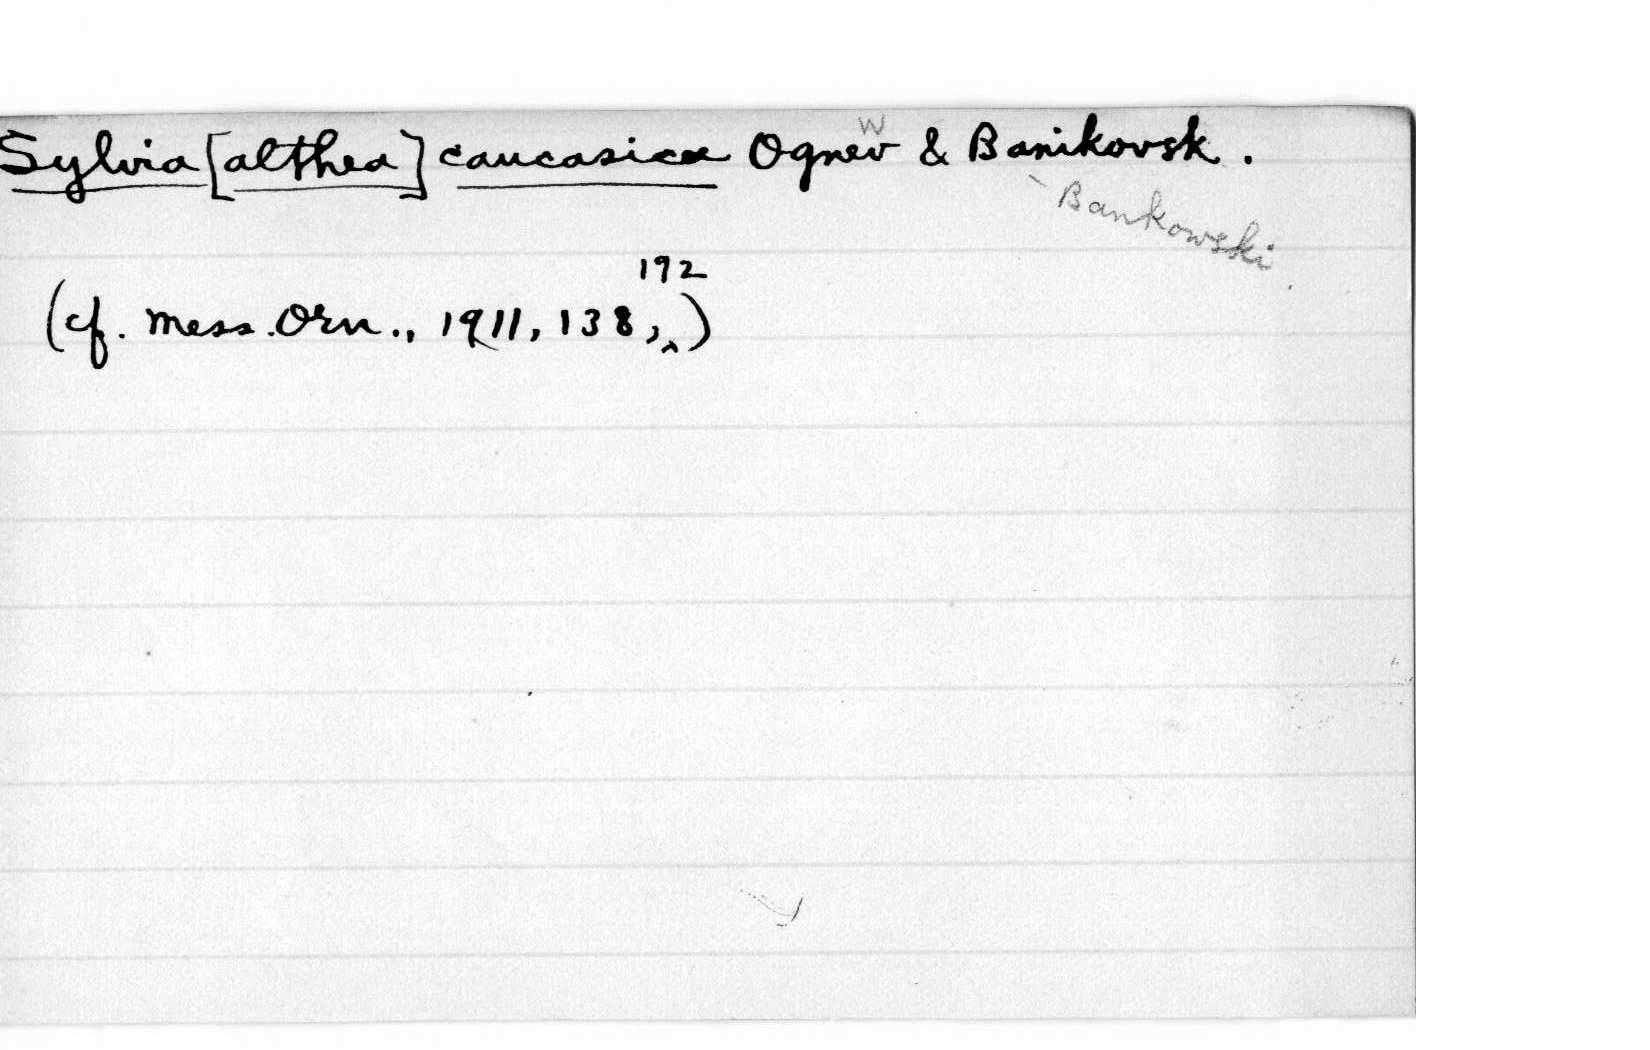 Sylvia [althea] caucasica Ognev & Banikovsk.
w
Bankowski
192
(cf. Mess. Orn., 1911, 138, ^)